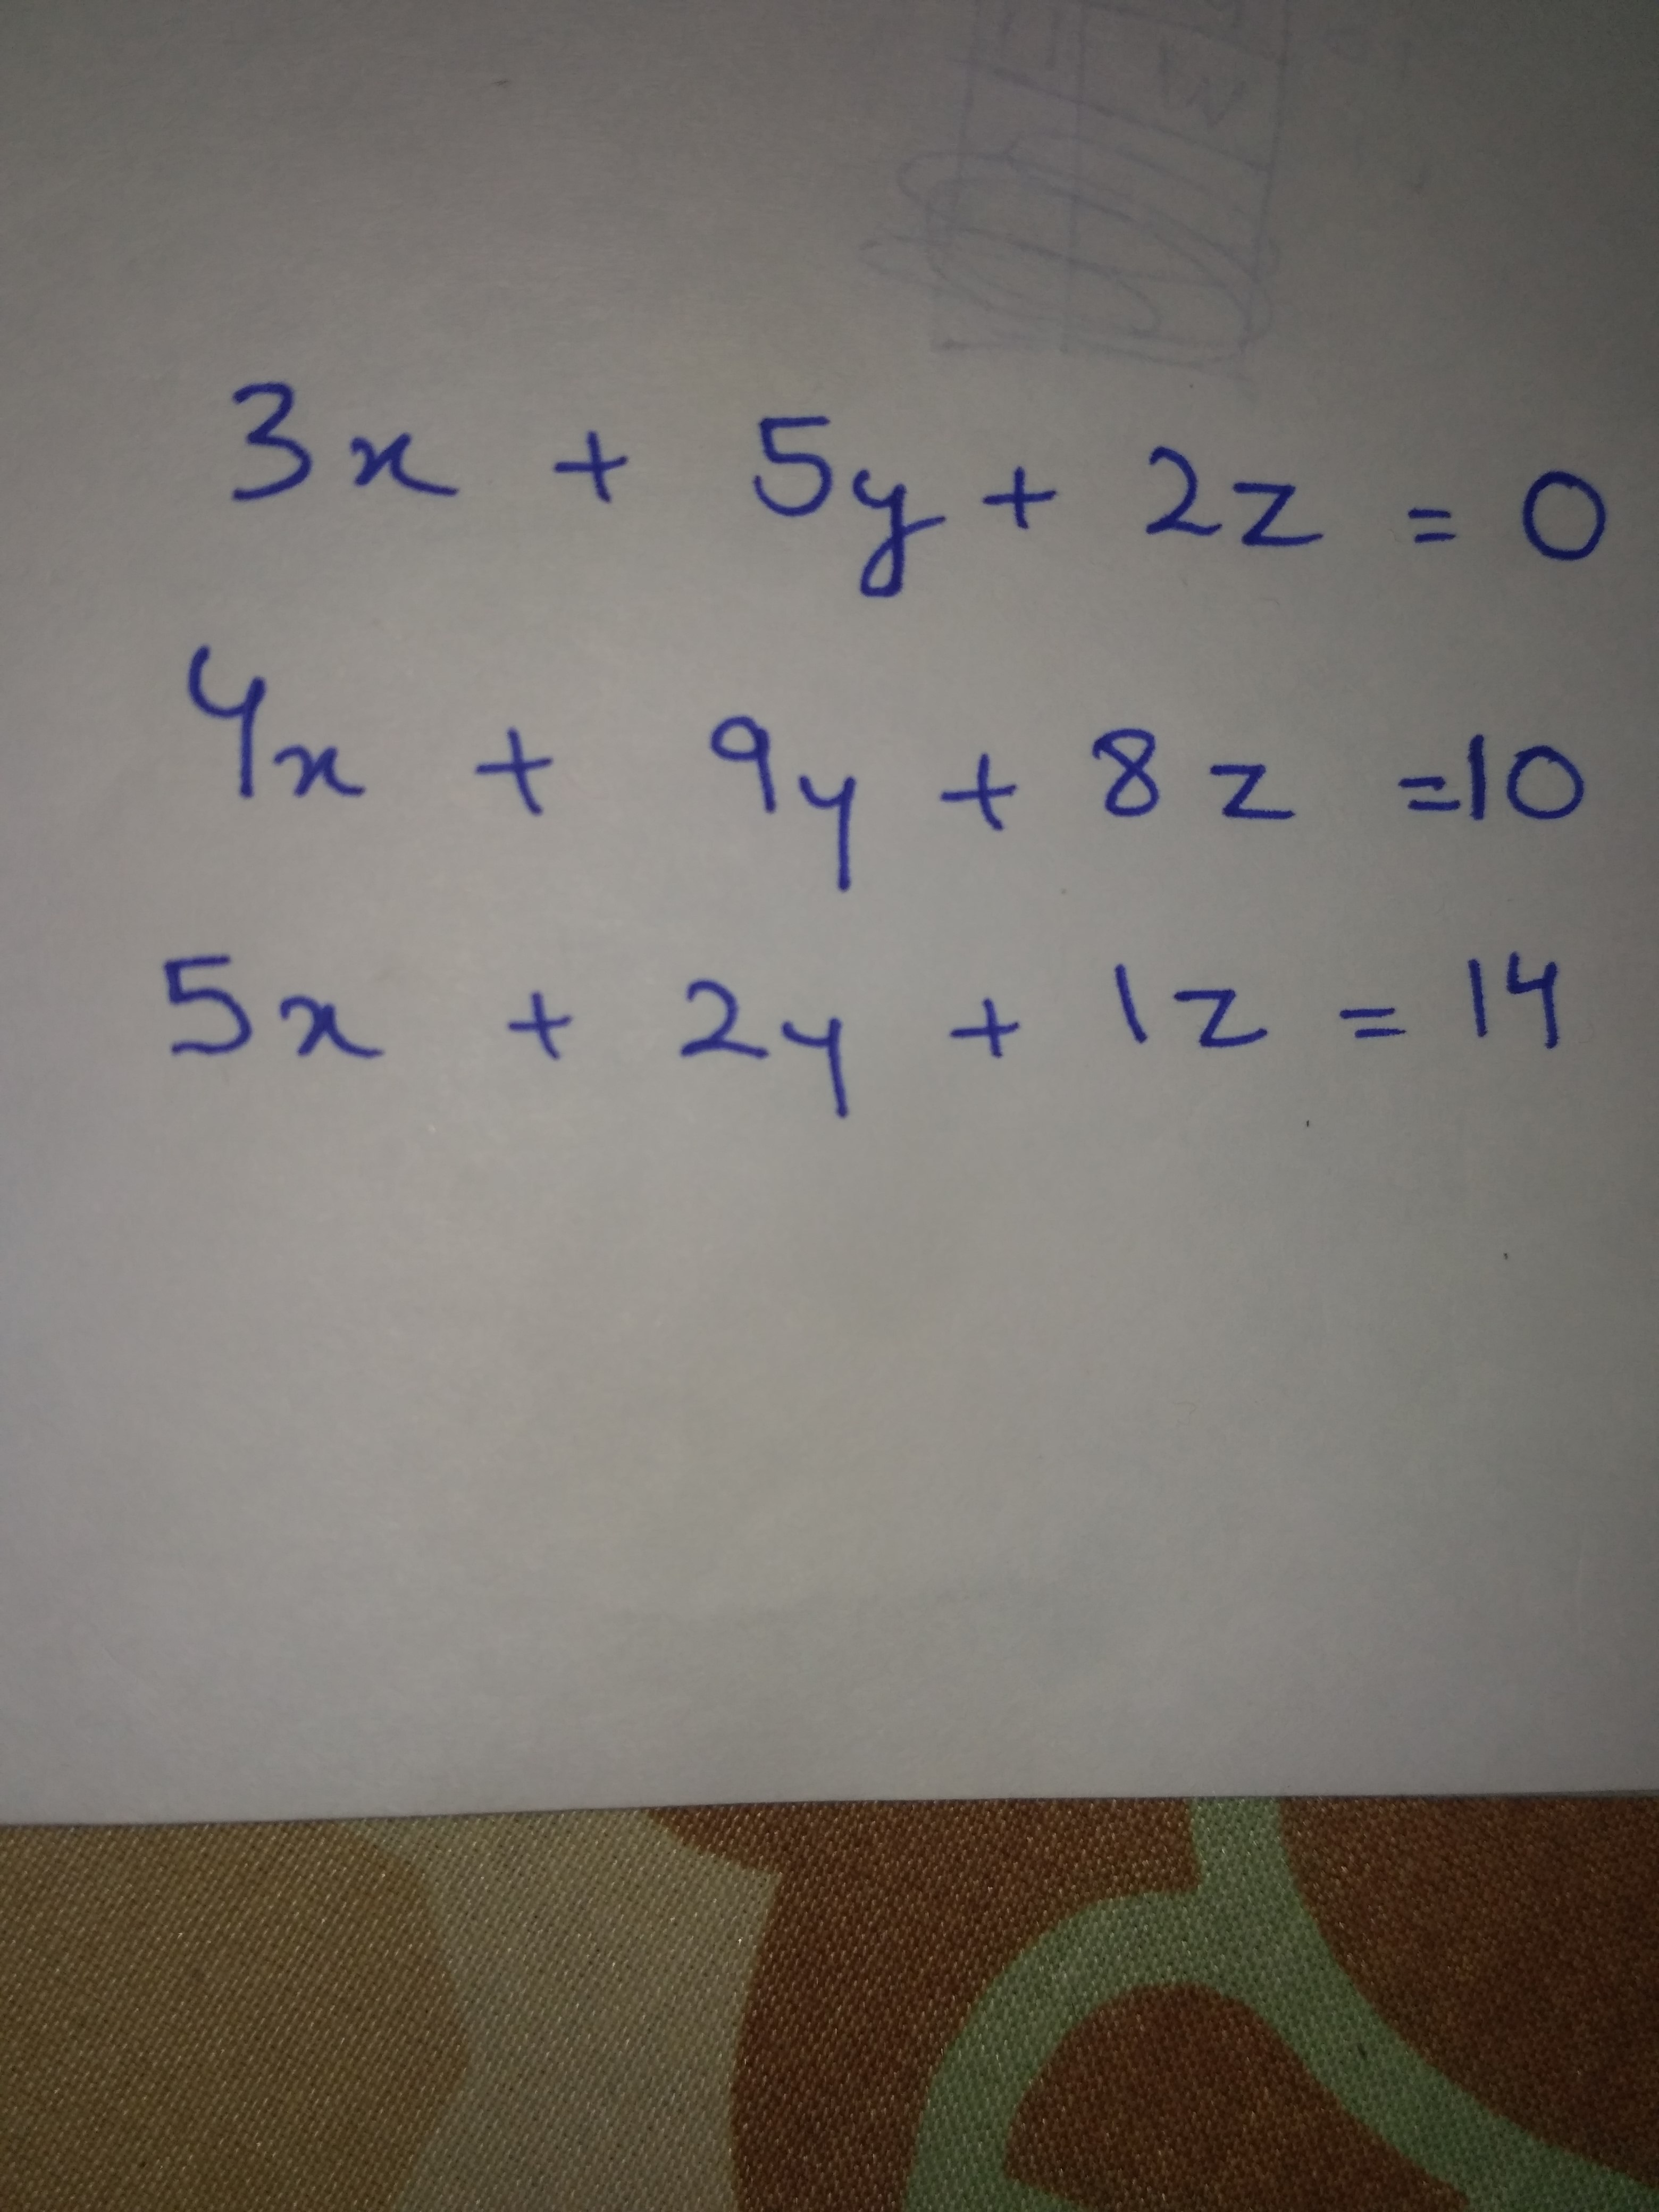 3x + 5y + 2z = 0
4x + 9y + 8z = 10
5x + 2y + 1z = 14